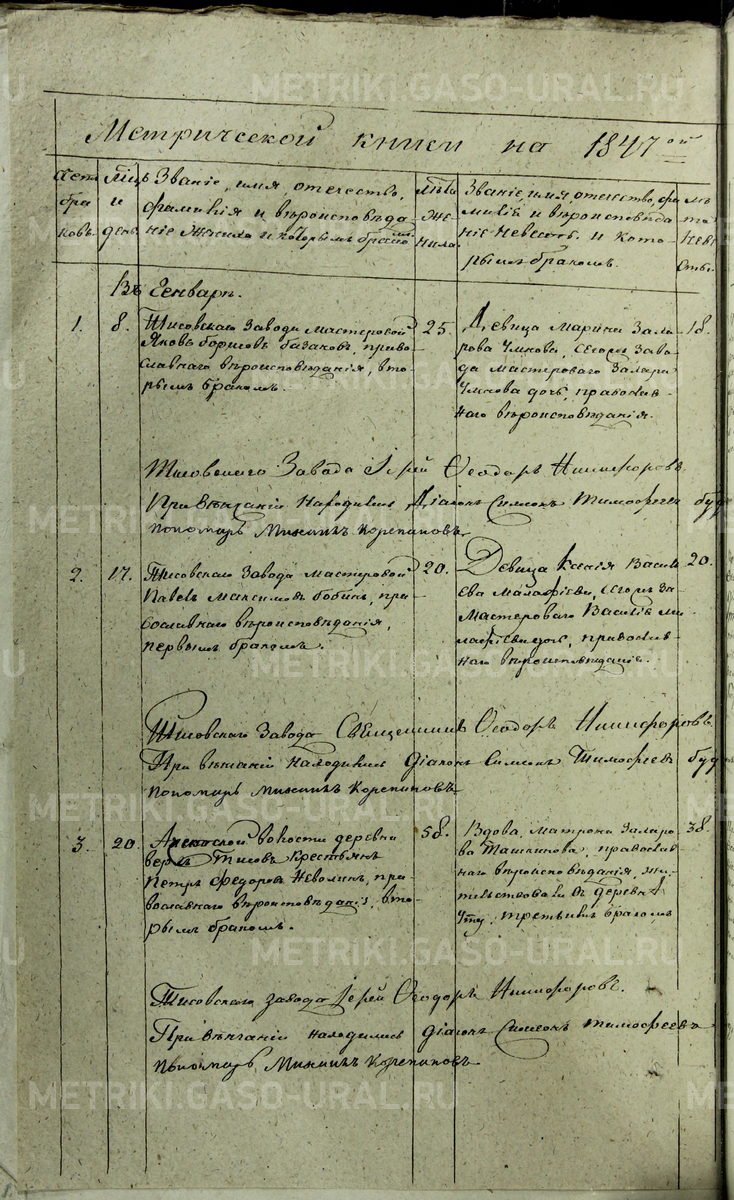 Метрической книги на 1847ой
Счетъ бра ковъ.
Мцъ и день.
Званіе, имя, отечество, фамилія и вѣроисповѣда
ніе Жениха и которымъ бракомъ
Лѣта Же ниха.
Званіе, имя, отечество, фа
милія и вѣроисповѣда
ніе Невѣсты. и кото
рымъ бракомъ.
Лѣ та Невѣ сты.
Въ Генварѣ.
1. 8.
Тисовскаго Завода мастеровой
Яковъ борисовъ базановъ, право
славнаго вѣроисповѣданія, вто
рымъ бракомъ.
25.
Девица Марина Заха
рова Умнова, сегоже заво
да мастероваго Захара
Умнова дочь, православ
наго вѣроисповѣданія.
18.
Тисовскаго Завода Іерей Ѳеодоръ Никифоровъ
При вѣнчаніи находились Діаконъ Симеонъ Тимофеевъ
пономарь Михаилъ Корепановъ
2. 17.
Тисовскаго завода мастеровой
Павелъ Максимовъ бобинъ, пра
вославнаго вѣроисповѣданія,
первымъ бракомъ.
20.
Девица Ксенія Василь
ева Малафѣева, сегожъ за
Мастероваго Василія Ма
лафѣева дочь, православ
наго вѣроисповѣданія.
20.
Тисовскаго Завода Священникъ Ѳеодоръ Никифоровъ
При вѣнчаніи находились Діаконъ Симеонъ Тимофеевъ
пономарь Михаилъ Корепановъ
3. 20.
волости деревни
верхъ Тисовъ Крестьянъ
Петръ Федоровъ Неволинъ, пра
вославнаго вѣроисповѣданія, вто
рымъ бракомъ.
58.
Вдова, Матрона Захаро
ва православ
наго вѣроисповѣданія, жи
въ деревнѣ
третьимъ бракомъ
38.
Тисовскаго завода Іерей Ѳеодоръ Никифоровъ.
При вѣнчаніи находились діаконъ Симеонъ Тимофеевъ
пономарь Михаилъ Корепановъ
METRIKI.GASO-URAL.RU